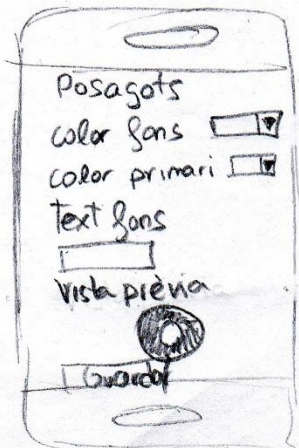 Posagots
color fons
color primari
Text fons
Vista prèvia
Guardar